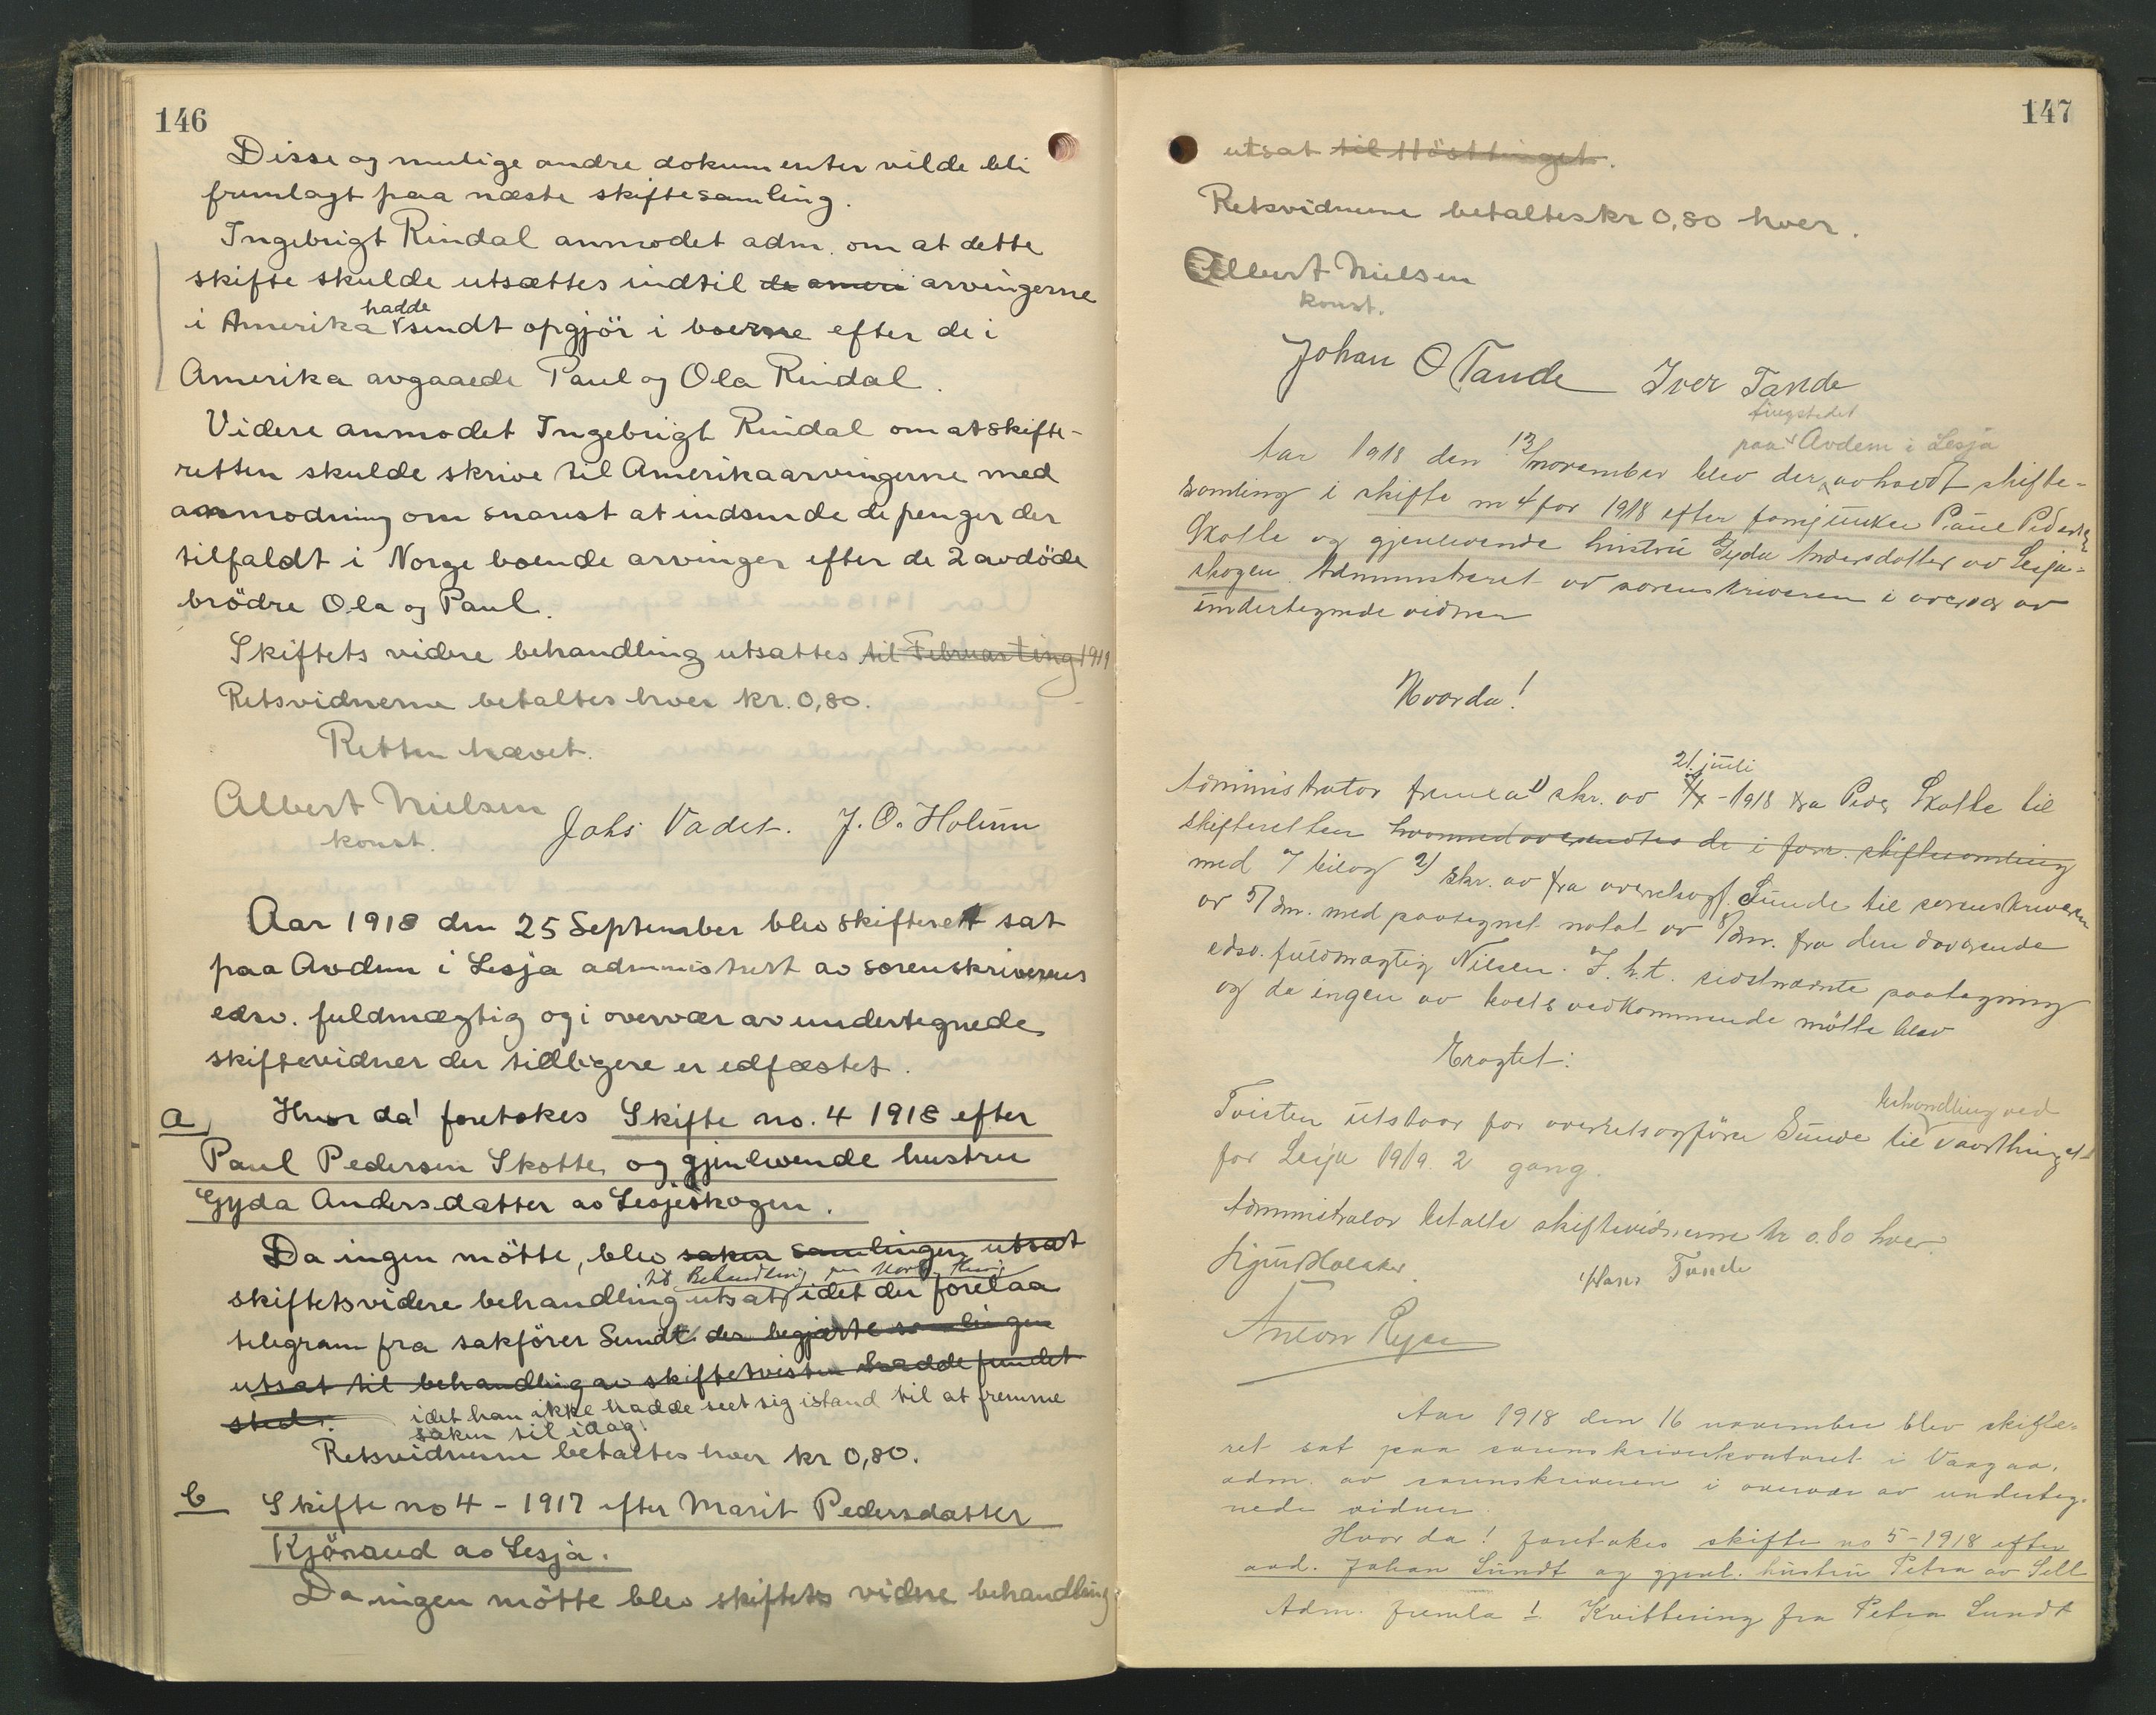 146
Disse og mulige andre dokumenter vilde bli
fremlagt paa næste skiftesamling.
Ingebrigt Rindal anmodet adm. om at dette
skifte skulde utsættes indtil de ameri arvingerne
i Amerika hadde sendt opgjör i boerne efter de i
Amerika avgaaede Paul og Ola Rindal.
Videre anmodet Ingebrigt Rindal om at skifte-
retten skulde skrive til Amerikaarvingerne med
anmodning om snarest at indsende de penger der
tilfaldt i Norge boende arvinger efter de 2 avdöde
brödre Ola og Paul.
Skiftets videre behandling utsattes til Februarting 1919
Retsvidnerne betaltes hver kr. 0,80.
Retten hævet.
Albert Nielsen
konst.
Johs Vadet. J. O. Holum
Aar 1918 den 25 September blev skifterett sat
paa Avdem i Lesja administrert av sorenskriverens
edsv. fuldmægtig og i overvær av undertegnede
skiftevidner der tidligere er edfæstet.
a) Hvor da! foretokes Skifte no. 4 1918 efter
Paul Pedersen Skotte og gjenlevende hustru
Gyda Andersdatter av Lesjeskogen.
Da ingen mötte, blev saken samlingen utsat
til Behandling paa
skiftets videre behandling utsat idet der forelaa
telegram fra sakförer Sundt der begjærte samlingen
utsat til behandling av skiftetvisten hadde fundet
sted. idet han ikke hadde seet sig istand til at fremme
saken til idag.
Retsvidnerne betaltes hver kr 0,80.
b Skifte no 4 - 1917 efter Marit Pedersdatter
Kjöraud av Lesja.
Da ingen mötte blev skiftets videre behandling
147
utsat til Hösttinget.
Retsvidnerne betaltes kr 0,80 hver.
Albert Nielsen
konst.
Johan O Tande Iver Tande
tingstedet
paa Avdem i Lesja
Aar 1918 den 13/november blev der avholdt skifte-
samling i skifte nr 4 for 1918 efter Paul Pedersen
Skotte og gjenlevende hustru Gyda Andersdatter av Lesja-
skogen. Administreret av sorenskriveren i overvær av
undertegnede vidner
Hvorda!
21. juli
Administrator fremla 1) skr. av - 1918 fra Peder Skotte til
skifteretten hvormed oversendtes de i forr. skiftesamling
med 7 bilag 2) skr. av fra overretssagf. Sunde til sorenskriveren
av 5/ dm. med paategnet notat av 8/dm. fra den daværende
edsv. fuldmægtig Nilsen. I. h. t. sidstnævnte paategning
og da ingen av boets vedkommende mötte blev
Eragtet:
behandling ved
Tvisten utstaar for overretssagförer Sunde til vaartinget
for Lesja 1919. 2 gang.
Administrator betalte skiftevidnerne kr 0.80 hver.
Hans Tande
Anton
Aar 1918 den 16 november blev skifte-
ret sat paa sorenskriverkontoret i Vaagaa,
adm. av sorenskriveren i overvær av underteg-
nede vidner.
Hvor da! foretokes skifte no 5 - 1918 efter
avd. Johan Sundt og gjenl. hustru Petra av Sell
Adm. fremla 1. Kvittering fra Petra Sundt